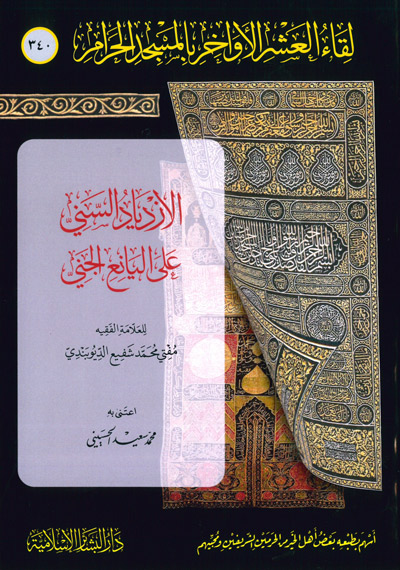 لقاء العشر الأواخر بالمسجد الحرام
٣٤٠
الازدياد السني
على اليانع الجني
للعلامة الفقيه
مفتي محمد شفيع الديوبندي
اعتنى به
محمد سعيد الحسيني
أسهم بطبعه بعض أهل الخير من الحرمين الشريفين ومحبيهم
دار البشائر الإسلامية